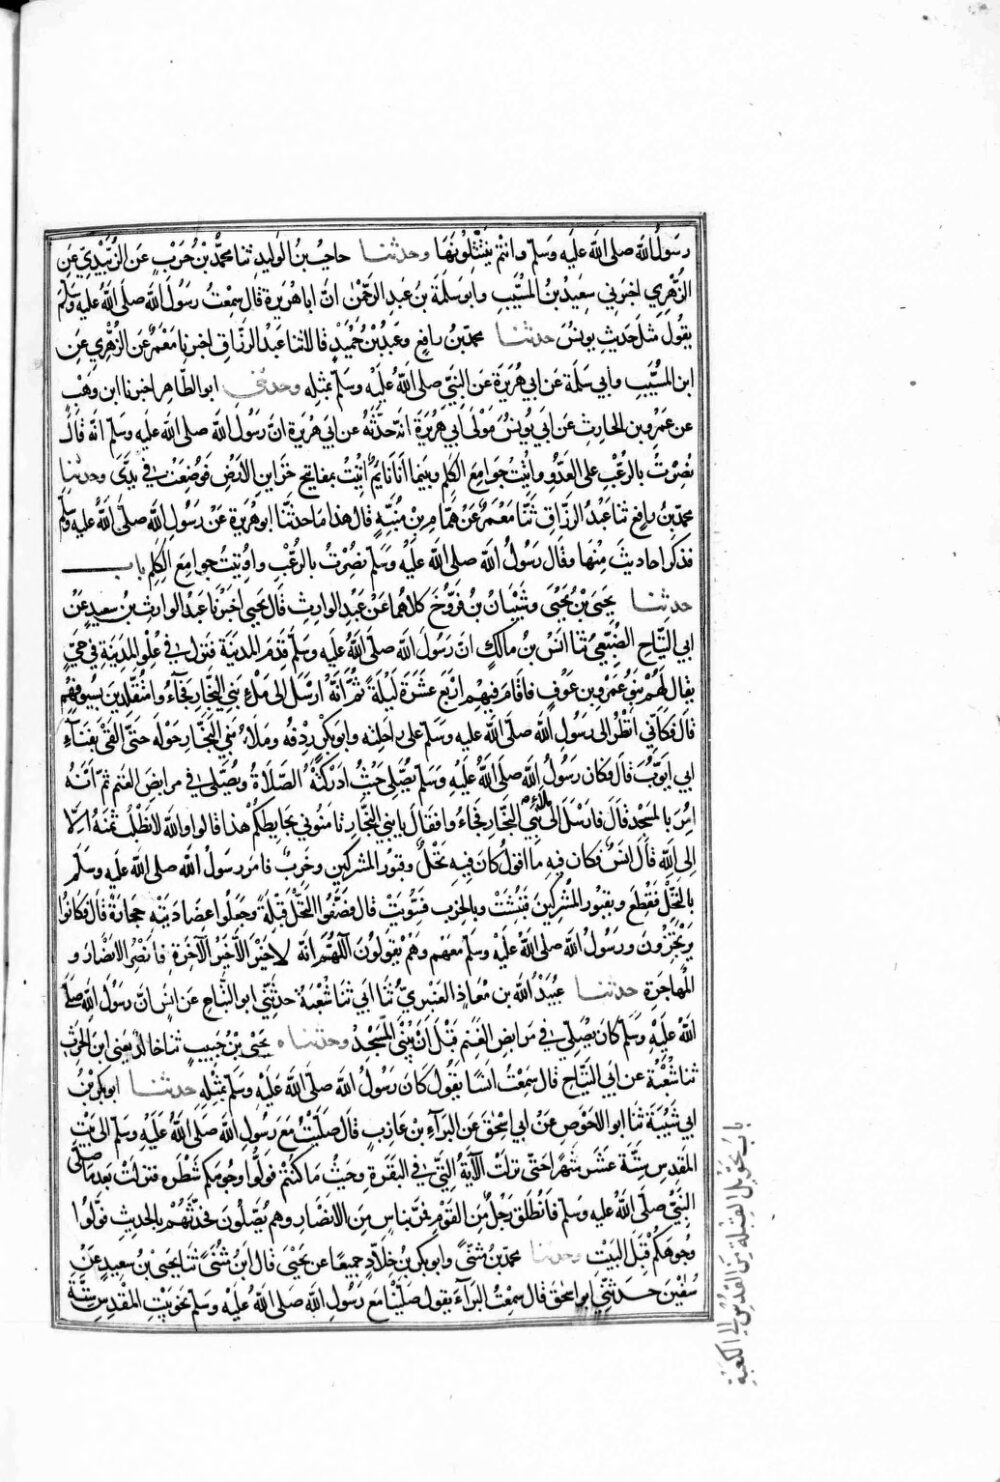 رسول الله صلى الله عليه وسلم وانتم تنتثلونها وحدثنا حاجب بن الوليد ثنا محمد بن حرب عن الزبيدي عن
الزهري اخبرني سعيد بن المسيب وابو سلمة بن عبد الرحمن ان ابا هريرة قال سمعت رسول الله صلى الله عليه وسلم
يقول مثل حديث يونس حدثنا محمد بن رافع وعبد بن حميد قالا ثنا عبد الرزاق اخبرنا معمر عن الزهري عن
ابن المسيب وابي سلمة عن ابي هريرة عن النبي صلى الله عليه وسلم بمثله وحدثني ابو الطاهر اخبرنا ابن وهب
عن عمرو بن الحارث عن ابي يونس مولى ابي هريرة انه حدثه عن ابي هريرة ان رسول الله صلى الله عليه وسلم انه قال
نصرت بالرعب على العدو واوتيت جوامع الكلم وبينما انا نايم اتيت بمفاتيح خزاين الارض فوضعت في يدي وحدثنا
محمد بن رافع ثنا عبد الرزاق ثنا معمر عن همام بن منبه قال هذا ما حدثنا ابو هريرة عن رسول الله صلى الله عليه وسلم
فذكر احاديث منها وقال رسول الله صلى الله عليه وسلم نصرت بالرعب واوتيت جوامع الكلم باب
حدثنا يحيى بن يحيى وشيبان بن فروخ كلاهما عن عبد الوارث قال يحيى اخبرنا عبد الوارث بن سعيد عن
ابي التياح الضبعي ثنا انس بن مالك ان رسول الله صلى الله عليه وسلم قدم المدينة فنزل في علو المدينة في حي
يقال لهم بنو عمرو بن عوف فاقام فيهم اربع عشرة ليلة ثم انه ارسل الى ملاء بني النجار فجاءوا متقلدين بسيوفهم
قال فكاني انظر الى رسول الله صلى الله عليه وسلم على راحلته وابو بكر ردفه وملاء بني النجار حوله حتى القى بفناء
ابي ايوب قال فكان رسول الله صلى الله عليه وسلم يصلي حيث ادركته الصلاة ويصلي في مرابض الغنم ثم انه
امر بالمسجد قال فارسل الى ملاء بني النجار فجاءوا فقال يا بني النجار ثامنوني بحايطكم هذا قالوا والله لا نطلب ثمنه الا
الى الله قال انس فكان فيه ما اقول كان فيه نخل وقبور المشركين وخرب فامر رسول الله صلى الله عليه وسلم
بالنخل فقطع وبقبور المشركين فنبشت وبالخرب فسويت قال فصفوا النخل قبلة وجعلوا عضادتيه حجارة قال فكانوا
يرتجزون ورسول الله صلى الله عليه وسلم معهم وهم يقولون اللهم انه لا خير الا خير الآخرة فانصر الانصار و
المهاجرة حدثنا عبيد الله بن معاذ العنبري ثنا ابي ثنا شعبة حدثني ابو التياح عن انس ان رسول الله صلى
الله عليه وسلم كان يصلي في مرابض الغنم قبل ان يبنى المسجد وحدثنا يحيى بن حبيب ثنا خالد يعني ابن الحرث
ثنا شعبة عن ابي التياح قال سمعت انسا يقول كان رسول الله صلى الله عليه وسلم بمثله حدثنا ابو بكر بن
ابي شيبة ثنا ابو الاحوص عن ابي اسحق عن البرآء بن عازب قال صليت مع رسول الله صلى الله عليه وسلم الى بيت
المقدس ستة عشر شهرا حتى نزلت الآية التي في البقرة وحيث ما كنتم فولوا وجوهكم شطره فنزلت بعد ما صلى
النبي صلى الله عليه وسلم فانطلق رجل من القوم فمر بناس من الانصار وهم يصلون فحدثهم بالحديث فولوا
وجوهكم قبل البيت وحدثنا محمد بن مثنى وابو بكر بن خلاد جميعا عن يحيى قال ابن مثنى ثنا يحيى بن سعيد عن
سفين حدثني ابو اسحق قال سمعت البرآء يقول صلينا مع رسول الله صلى الله عليه وسلم نحو بيت المقدس ستة
باب تحويل القبلة من القدس الى الكعبة